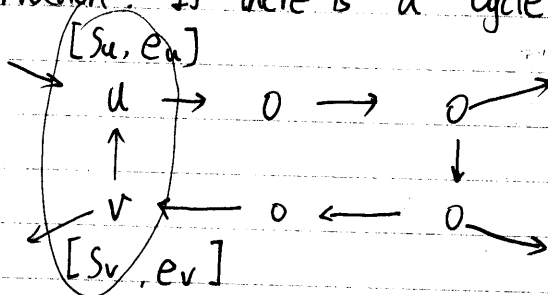 If there is a cycle
[Su, eu]
u → o → o
v ← o ← o
[Sv, ev]